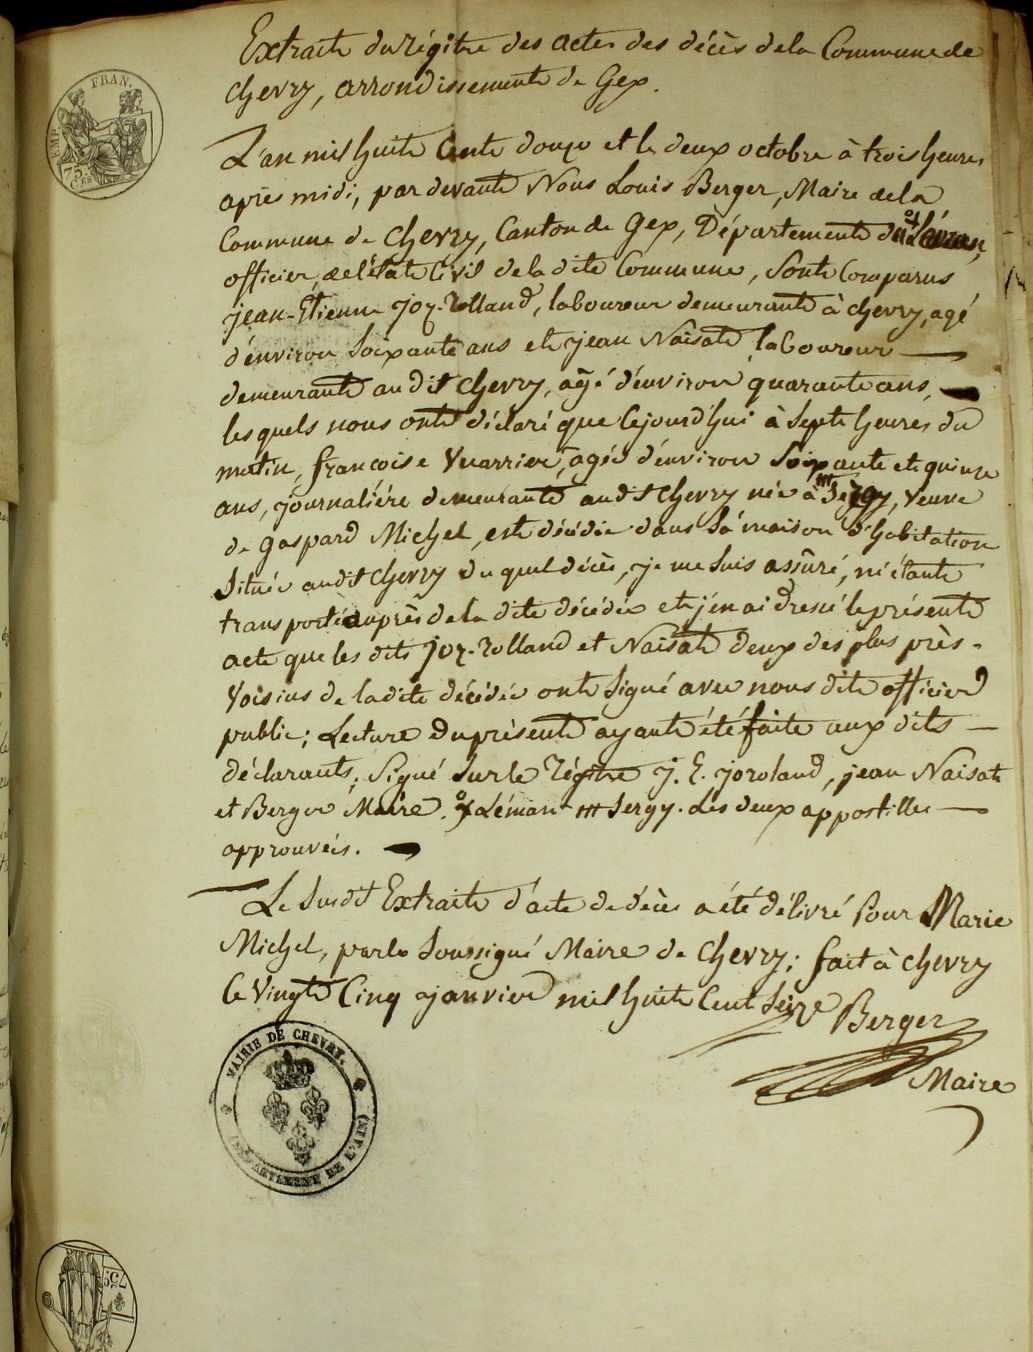 Extrait du régitre des actes des décès de la Commune de
chevry, arrondissement de Gex.
EMP. FRAN.
75.
CES
L'an mil huit Cent douze et le deux octobre à trois heures
après midi, par devant Nous Louis Berger, Maire de la
Commune de Chevry, Canton de Gex, Département du Léman,
officier de l'état Civil de la dite Commune, Sont Comparus
jean-Etienne joz-Rolland, laboureur demeurant à chevry, agé
d'environ Soixante ans et jean Naisat laboureur
demeurant au dit chevry, agé d'environ quarante ans,
les quels nous ont déclaré que Cejourd'hui à Sept heures du
matin, françoise Vuarrier, agée d'environ Soixante et quinze
ans, journalière demeurant audit chevry née à Sergy, Veuve
de gaspard Michel, est décédée dans Sa maison d'habitation
Située audit chevry du quel décès, je me Suis assûré, m'étant
transporté auprès de la dite décédée et j'en ai dressé le présent
acte que les dits joz-rolland et Naisat deux des plus près-
Voisins de la dite décédée ont Signé avec nous dit officier
public; Lecture du présent ayant été faite aux dits
déclarants; Signé Sur le régitre j. E. jozroland, jean Naisat
et Berger Maire. Léman Sergy. Les deux appostilles
approuvées.
Le Susdit Extrait d'acte de décès a été délivré Pour Marie
Michel, par le Soussigné Maire de Chevry; fait à chevry
le Vingt Cinq janvier mil huit Cent Seize Berger
Maire
MAIRIE DE CHEVRY.
(DÉPARTEMENT DE L'AIN)
75